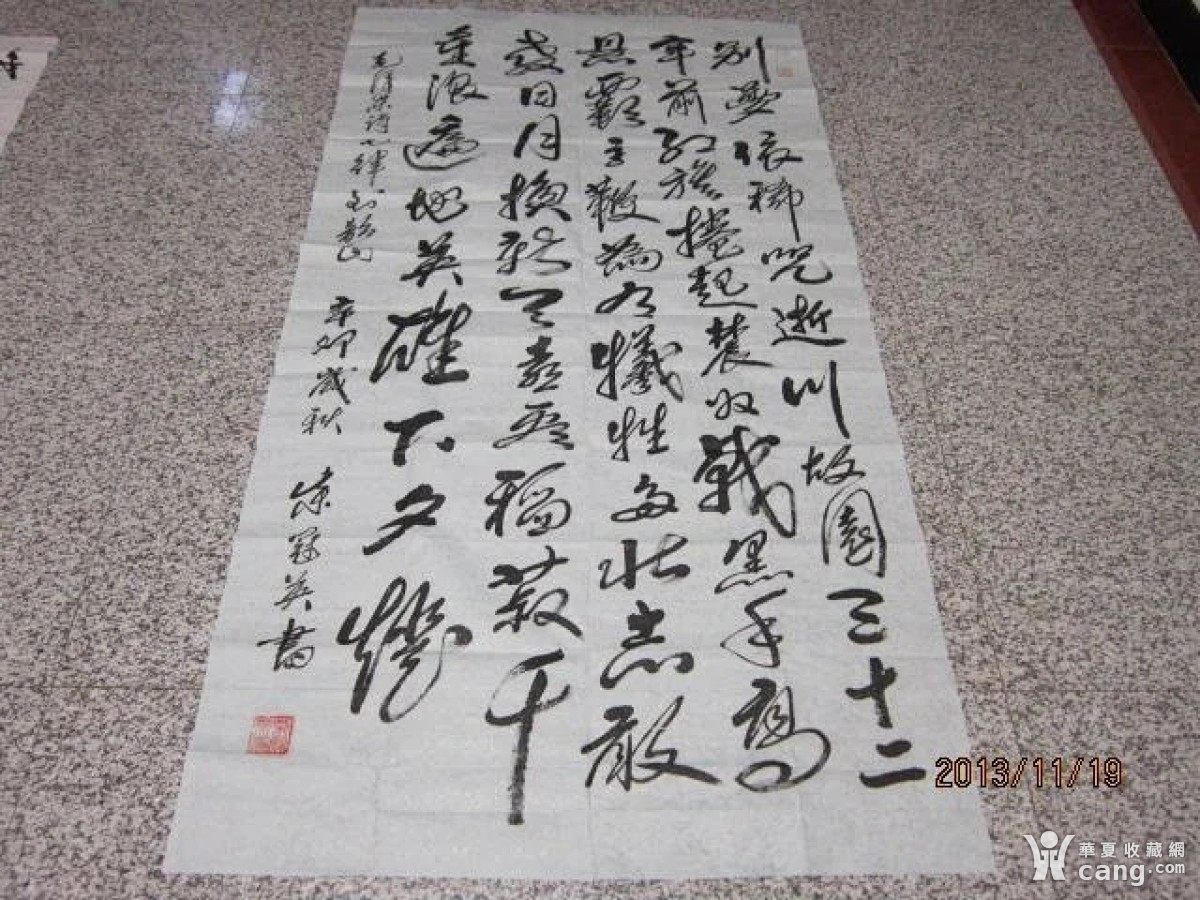 别梦依稀咒逝川故园三十二
年前红旗捲起农奴戟黑手高
悬霸主鞭为有犠牲多壮志敢
教日月换新天喜看稻菽千
重浪遍地英雄下夕烟
毛泽东诗七律到韶山 辛卯岁秋 冠英书
2013/11/19
華夏收藏網
cang.com